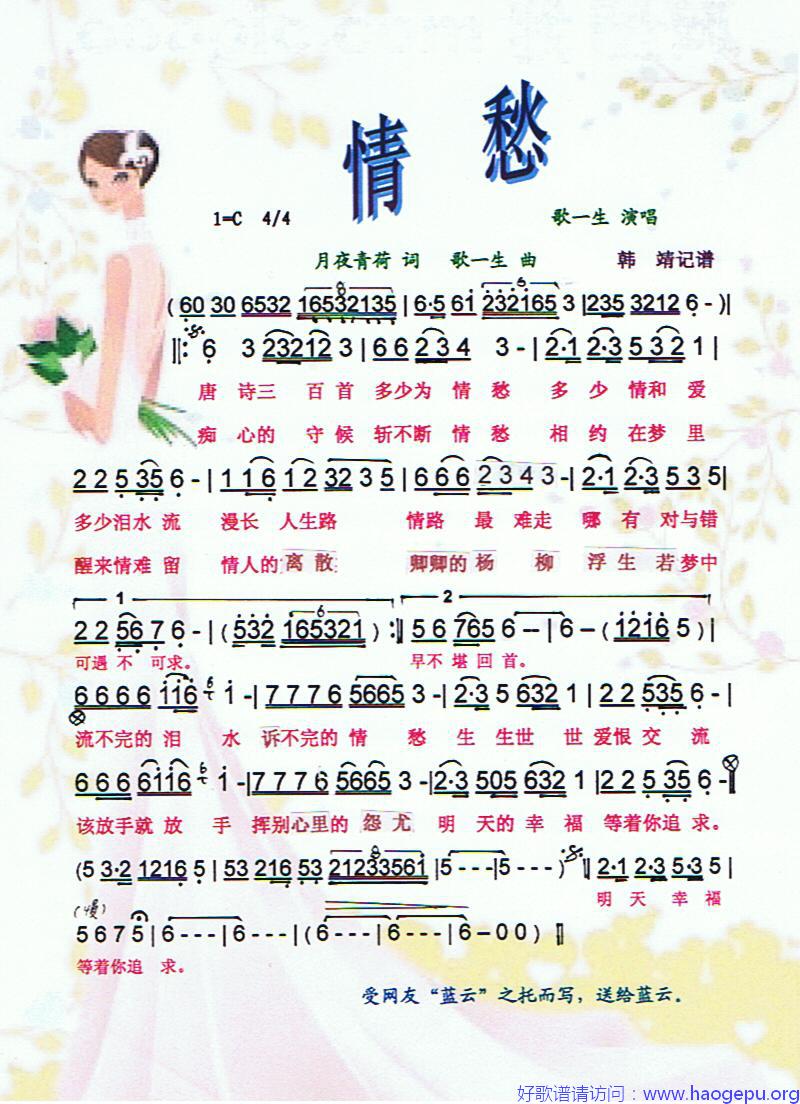 情 愁
1=C 4/4 歌一生 演唱
月夜青荷 词 歌一生 曲 韩 靖记谱
(60 30 6532 16532135 | 6·5 61 232165 3 | 235 3212 6 - )|
‖: 6 3 23212 3 | 6 6 2 3 4 3 - | 2·1 2·3 5 3 2 1 |
唐 诗三 百 首 多少为 情 愁 多 少 情和 爱
痴 心的 守 候 斩不断 情 愁 相 约 在梦 里
2 2 5 35 6 - | 1 1 6 1 2 32 3 5 | 6 6 6 2 3 4 3 - | 2·1 2·3 5 3 5 |
多少泪水 流 漫长 人生路 情路 最 难走 哪 有 对与错
醒来情难 留 情人的 离 散 卿卿的 杨 柳 浮 生 若 梦中
1 6 2
2 2 56 7 6 - | (532 165321 ) :‖ 5 6 765 6 - - | 6 - (1216 5 ) |
可遇 不 可求。 早不 堪 回 首。
6 6 6 6 116 6 1 - | 7 7 7 6 5665 3 - | 2·3 5 632 1 | 2 2 535 6 - |
流不完的 泪 水 诉不完的 情 愁 生 生世 世 爱恨 交 流
6 6 6 6116 6 1 - | 7 7 7 6 5665 3 - | 2·3 505 632 1 | 2 2 5 35 6 - ‖
该放手就 放 手 挥别心里的 怨 尤 明 天的 幸 福 等着你追 求。
(5 3·2 1216 5 | 53 216 53 21233561 | 5 - - - | 5 - - - ) ‖ 2·1 2·3 5·3 5 |
明 天 幸 福
(慢)
5 6 7 5 | 6 - - - | 6 - - - | (6 - - - | 6 - - - | 6 - 0 0 ) ‖
等着你追 求。
受网友“蓝云”之托而写，送给蓝云。
好歌谱请访问：www.haogepu.org